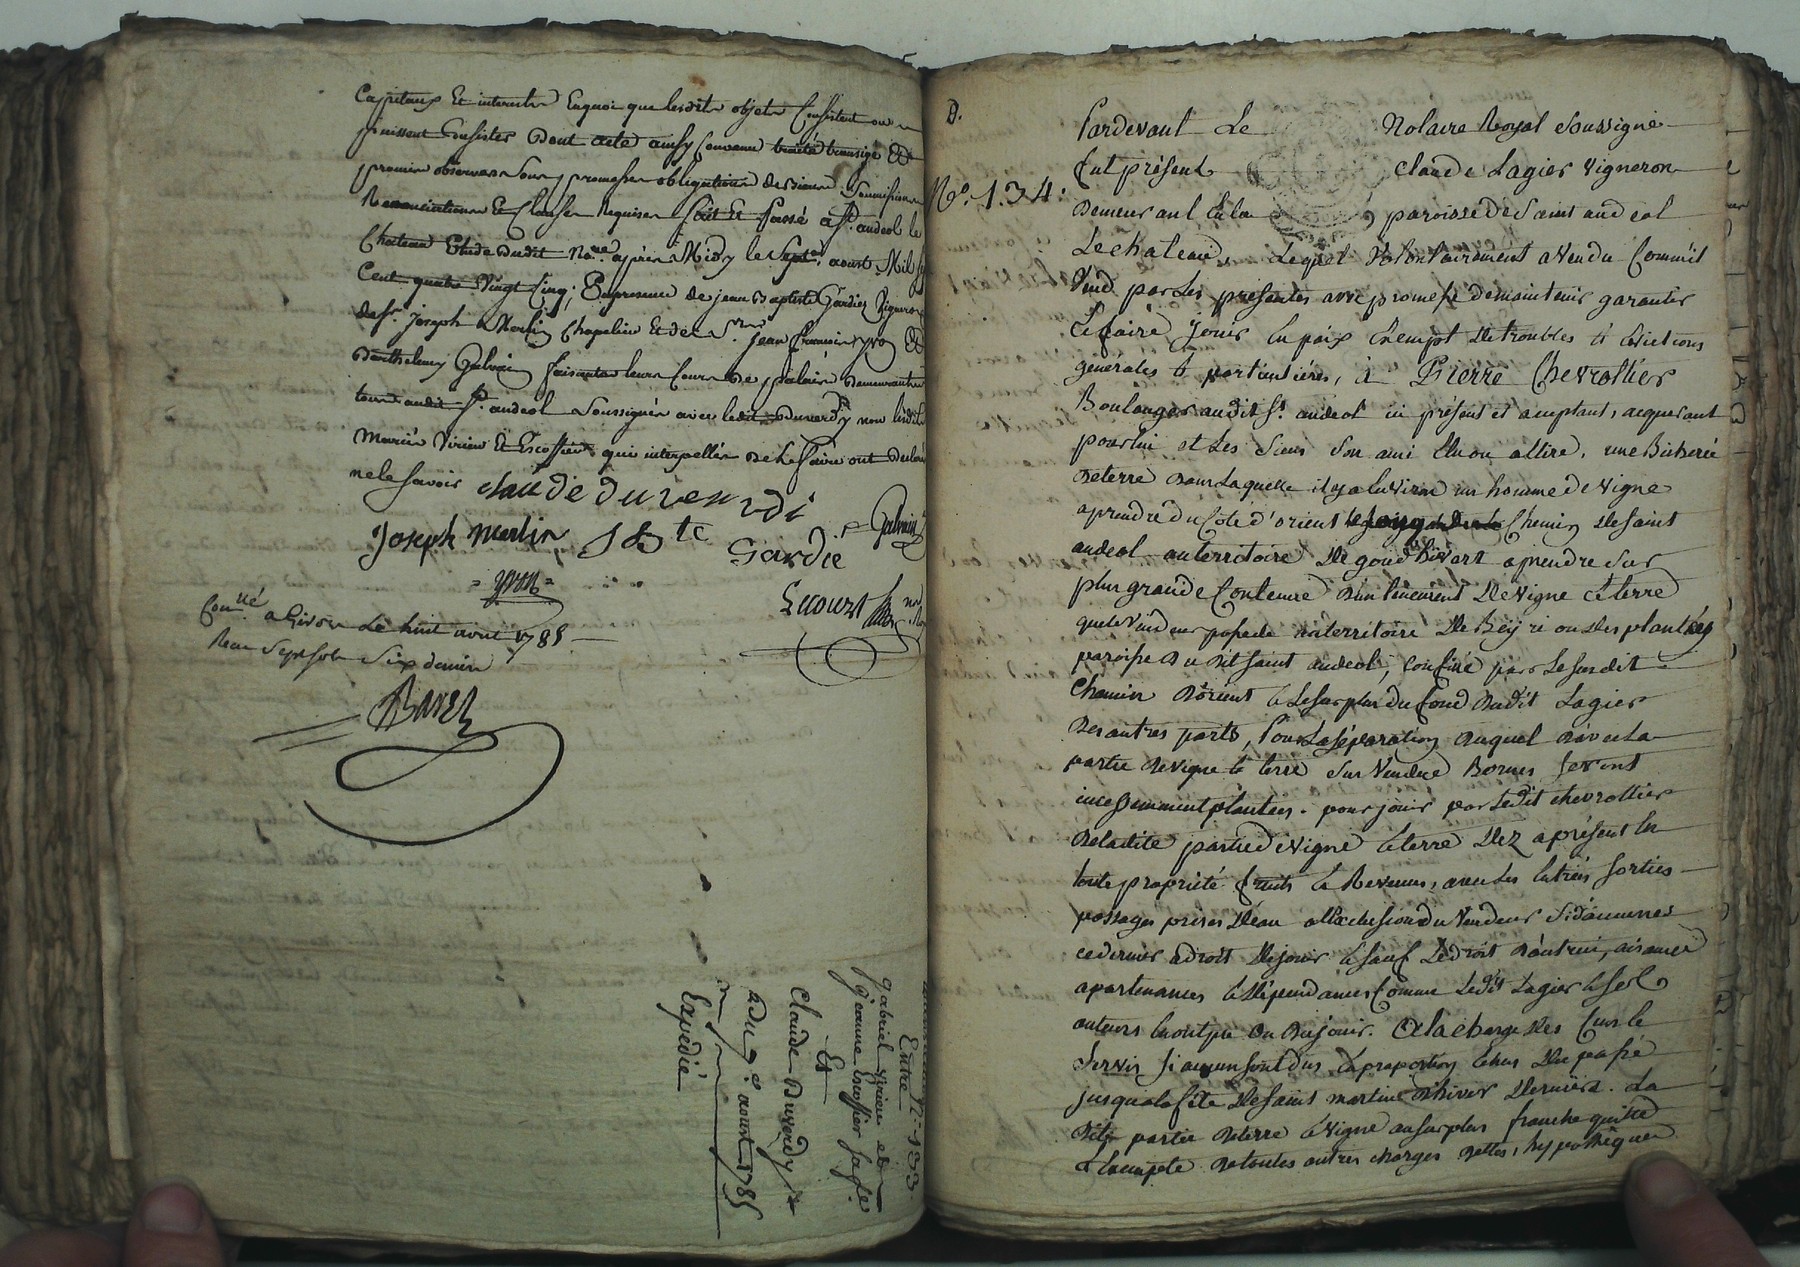 capitaux Et interets Enquoi que lesdits objets Consistent ou
puissent Consister Dont acte ainsy Convenu traité transigé Et
promis observer sous promesses obligations de biens Soumissions
Renonciations Et Clauses Requises fait Et Passé a St. andeol le
Chateau Etude dudit Nore. après Midy le Sept aoust Mil Sept
Cent quatre Vingt Cinq, En presence de jean Baptiste Gardier Vigneron
de sr. Joseph Merlin Chapelier Et de Srs. jean francois yvon Et
Barthelemy Galvin faisants leurs Cours de palais Demeurants
tous audit St. andeol Soussignés avec ledit Duverdy non lesdits
mariés Virieu Et Escoffier qui interpellés De le faire ont Declaré
ne le savoir
claude duverdi
Joseph merlin J Bte Gardié Galvin
yvon
Lecourt
Conllé a Givors Le huit aout 1785
Recu Sept sols Six deniers
Baret
N°. 133
Entre
gabriel virieu et
jeanne Escoffier sa fe.
Et
Claude Duverdy
Du 7e. aoust 1785
Expédié
D.
N°. 134.
Pardevant Le Notaire Royal soussigné
fut présent Claude Lagier Vigneron
Demeurant En la paroisse de Saint andeol
Le chateau, Lequel Volontairement a Vendu Comm'il
Vend par Les presentes avec promesse de maintenir garantir
et faire jouir En paix Exempt De troubles & evictions
générales & particulières, à Pierre Chevrottier
Boulanger audit St. andeol ici présent et acceptant, acquerant
pour lui et Les siens son ami Elu ou a Elire, une Bicherée
De terre Dans Laquelle il y a Environ un homme de Vigne
a prendre du Coté d'orient Chemin De Saint
andeol au territoire De a prendre Sur
plus grande Contenue D'un tenement De Vigne & terre
que le Vendeur possede au territoire De ou Des plantées
paroisse Du dit Saint andeol, Confiné par Le susdit
Chemin D'orient & Le surplus du fond Dudit Lagier
Des autres parts, Pour La séparation Duquel D'avec La
partie De Vigne & terre sus Vendue Bornes seront
incessamment plantées. pour jouir par Ledit chevrottier
De ladite partie de Vigne & terre Dez a présent En
toute propriété fruits & Revenus, avec Les Entrées sorties
passages prises D'eau a L'exclusion du Vendeur Si d'aucunes
ce dernier a droit De jouir & sauf Le droit D'autrui, aisances
apartenances & Dépendances Comme Ledit Lagier & ses
auteurs En ont pu ou Du jouir. a La charge Des Cens Le
Servis Si aucuns sont dus a proportion Echus Du passé
jusqu'a La fête De Saint martin D'hiver Dernière. La
Dite partie De terre & Vigne au surplus franche quitte
& Exempte De toutes autres charges Dettes, hypothèques